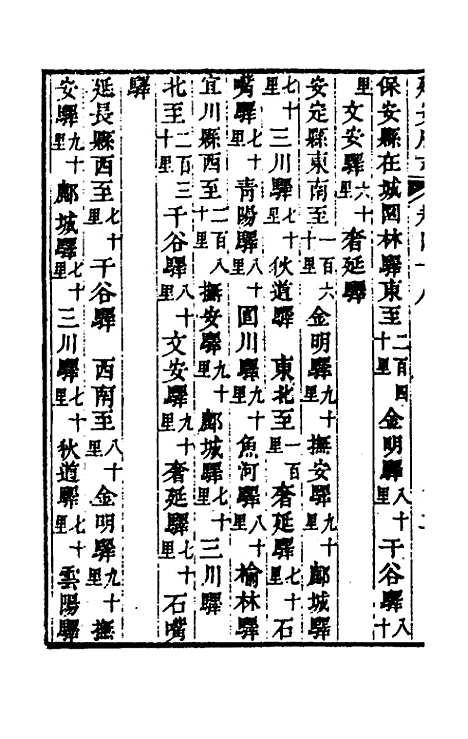 保安縣在城園林驛東至二百四十里金明驛八十里干谷驛八十
里文安驛六十里奢延驛
安定縣東南至一百六十里金明驛九十里撫安驛九十里鄜城驛
七十里三川驛七十里伙道驛　東北至一百里奢延驛七十里石
嘴驛七十里青陽驛八十里圁川驛九十里魚河驛八十里榆林驛
宜川縣西至二百八十里撫安驛九十里鄜城驛七十里三川驛
北至二百三十里干谷驛八十里文安驛九十里奢延驛七十里石嘴
驛
延長縣西至七十里干谷驛　西南至八十里金明驛九十里撫
安驛九十里鄜城驛七十里三川驛七十里秋道驛七十里雲陽驛